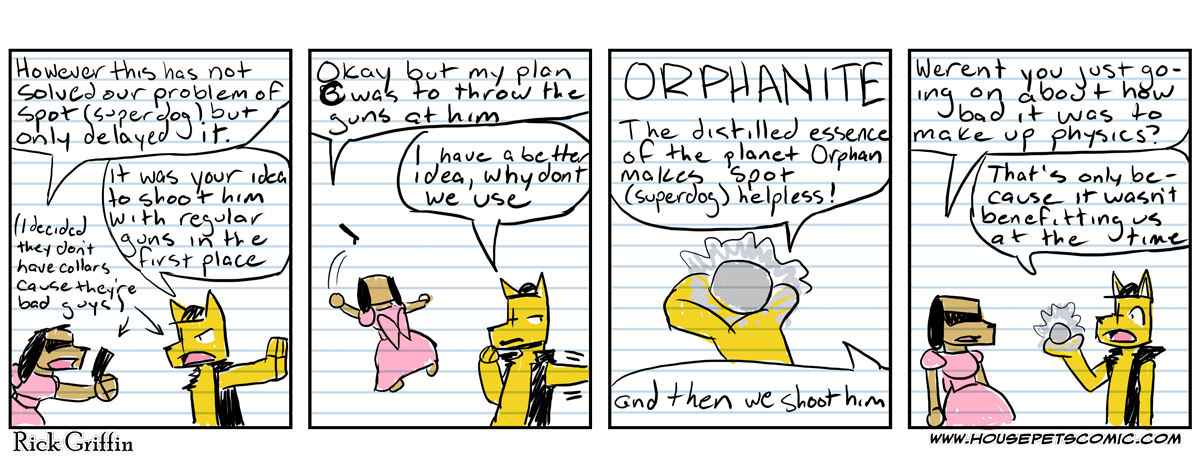 However this has not
solved our problem of
spot (superdog) but
only delayed it.
It was your idea
to shoot him
with regular
guns in the
first place
(I decided
they don't
have collars
cause they're
bad guys)
Okay but my plan
B was to throw the
guns at him
I have a better
idea, why dont
we use
ORPHANITE
The distilled essence
of the planet Orphan
makes spot
(superdog) helpless!
and then we shoot him
Werent you just go-
ing on about how
bad it was to
make up physics?
That's only be-
cause it wasn't
benefitting us
at the time
Rick Griffin
WWW.HOUSEPETSCOMIC.COM